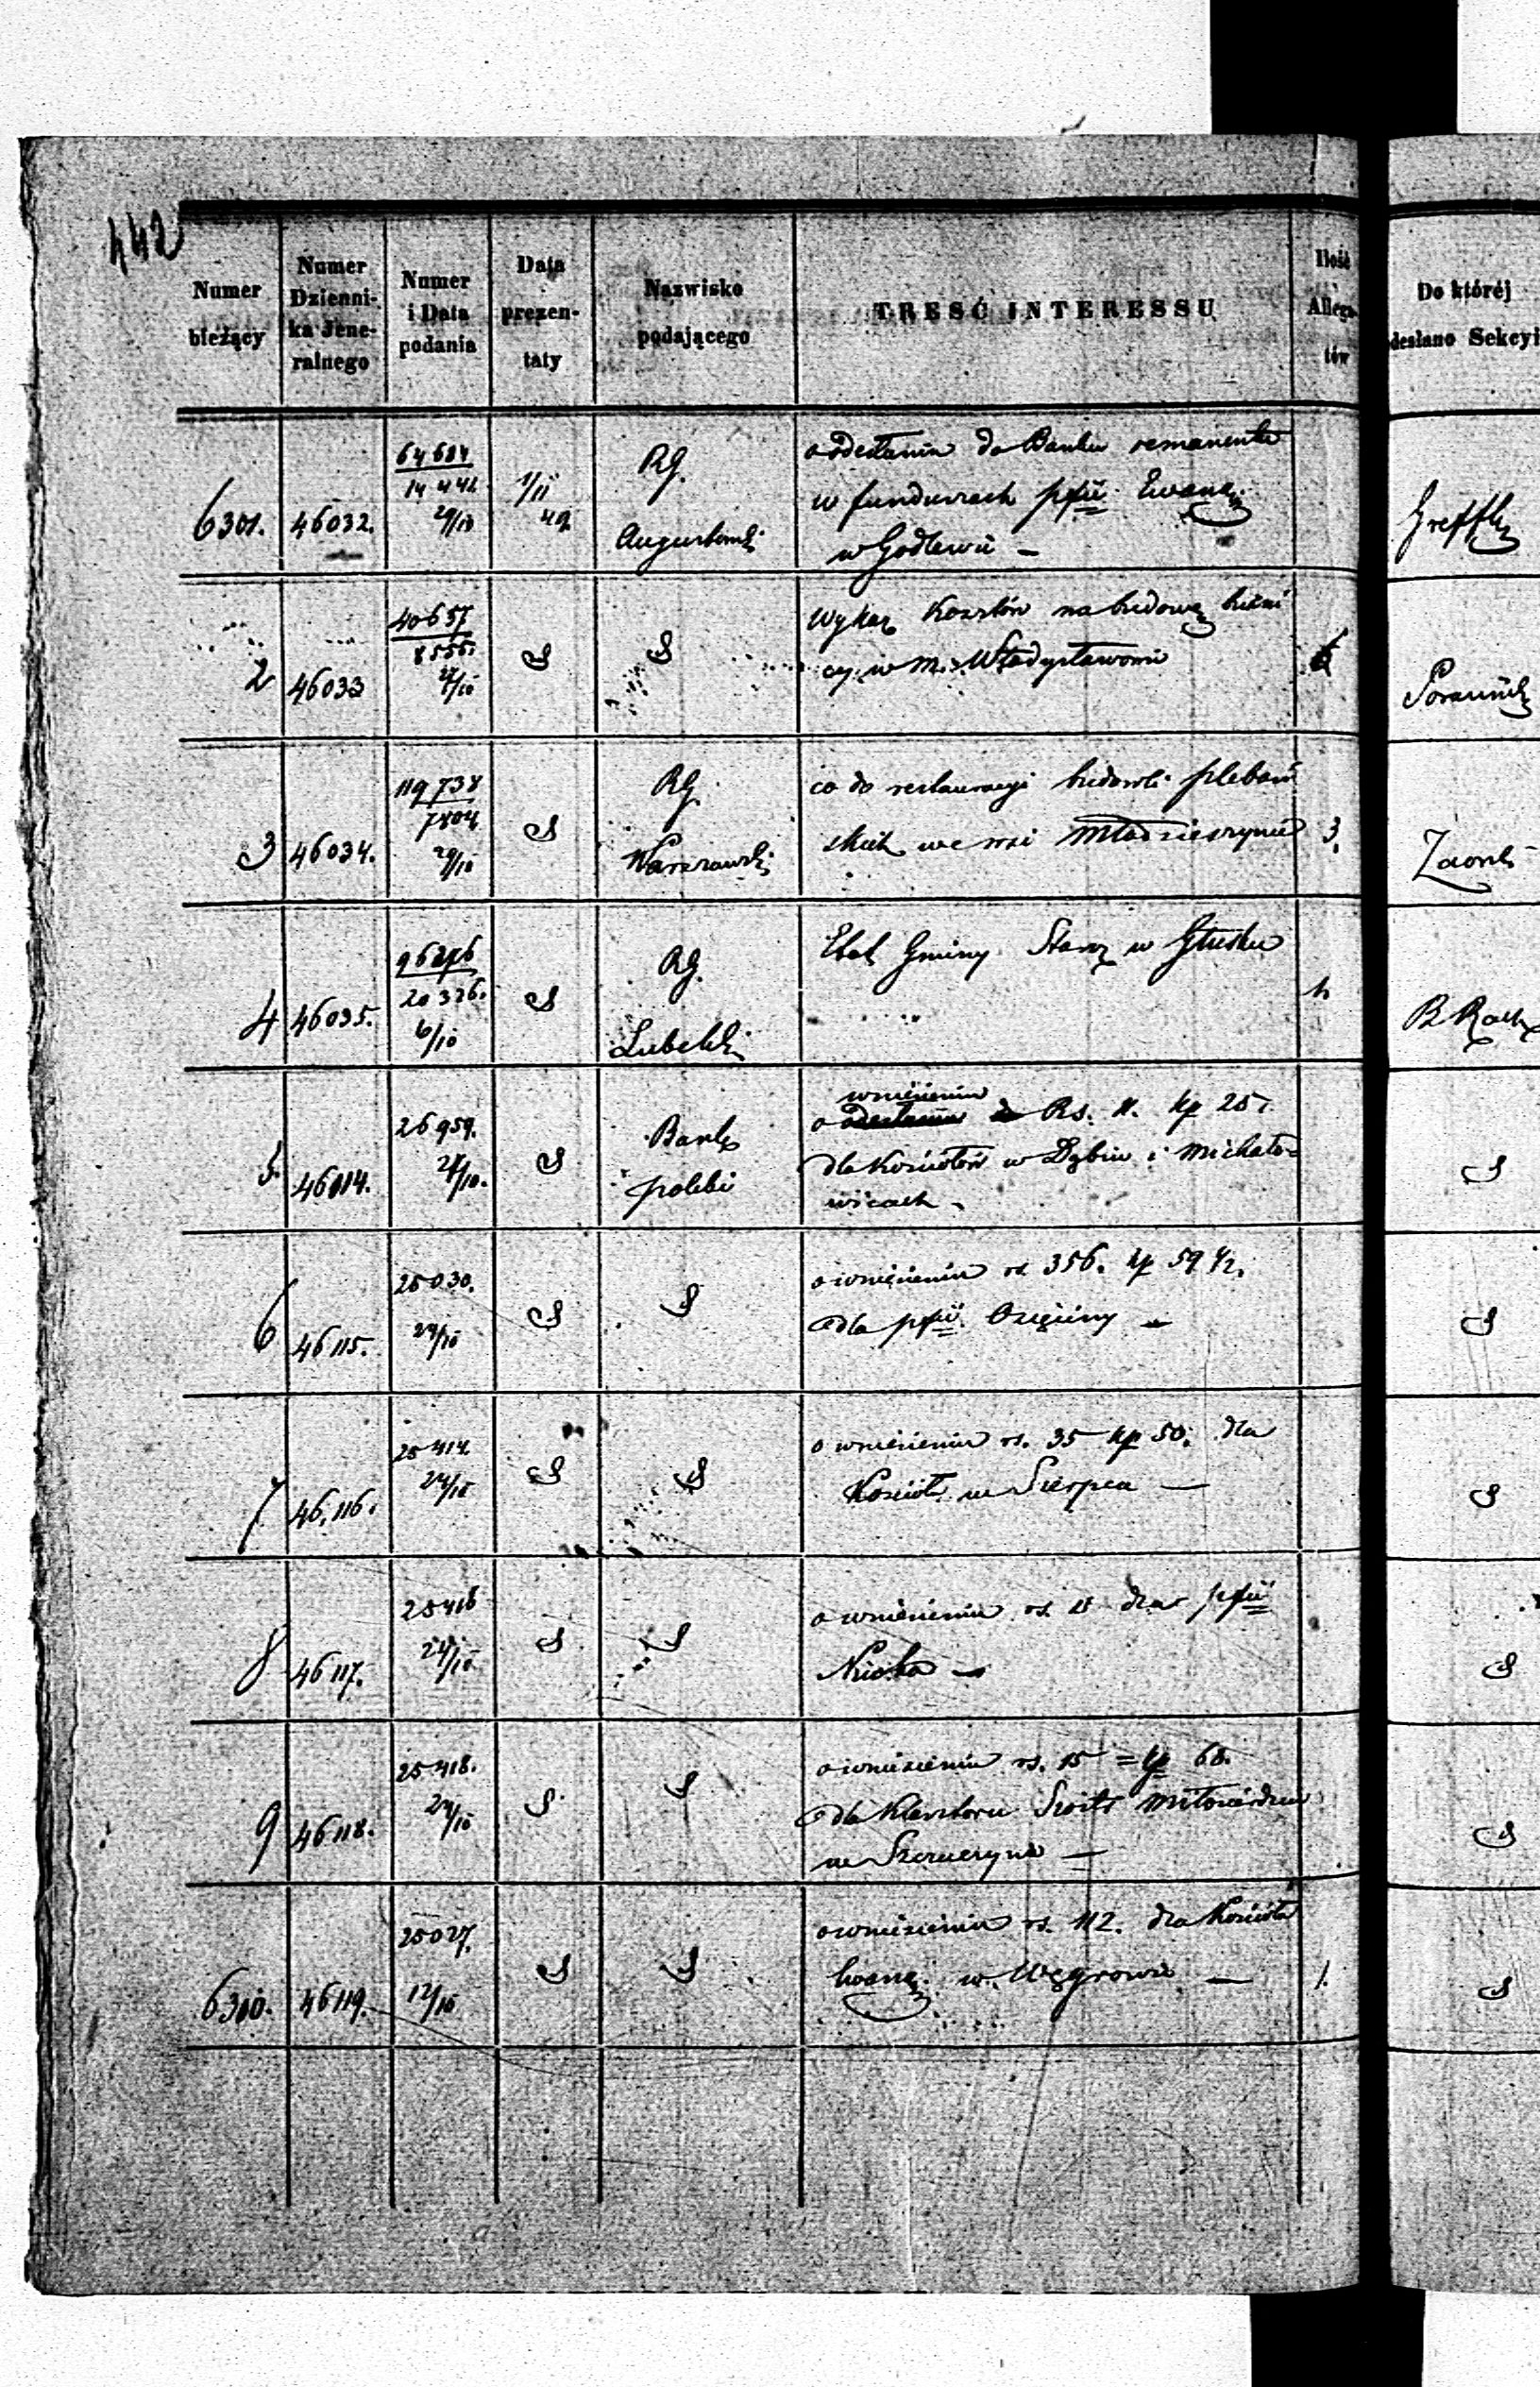 442
Numer bieżący | Numer Dzienni-ka Jene-ralnego | Numer i Data podania | Data prezen-taty | Nazwisko podającego | TREŚĆ INTERESSU | Ilość Allega-tów | Do któréj desłano Sekcyi
6301. | 46032. | 64684 / 14441. 29/10 | 1/11 49 | RG. Augustowski | o odesłaniu do Banku remanentu
w funduszach pfii Ewang.
w Godlewie —
2 | 46033 | 40657 / 8556. 27/10 | S | S | Wykaz Kosztów na budowę
cy w m. Władysławowie
3 | 46034. | 119738 / 7804 29/10 | S | RG. Warszawski | co do restauracyi budowli plebań
skich we wsi Młodzieszynie | 3.
4 | 46035. | 96276 / 20326. 6/10 | S | RG. Lubelski | Etat Gminy Starz w Głusku | 1.
5. | 46114. | 26959. 27/10. | S | Bank polski | wniesieniu
o Rs. 11. kp 25.
dla Kościołów w Dębiu i Michało=
wicach. | S
6 | 46115. | 25030. 24/10 | S | S | o wniesieniu rs. 356. kp 59 1/2.
dla pfii Osięciny — | S
7 | 46,116. | 25414. 24/10 | S | S | o wniesieniu rs. 35 kp 50. dla
Kościoł. w Sierpcu — | S
8 | 46117. | 25416 24/10 | S | S | o wniesieniu rs. 15 dla pfii
— | S
9 | 46118. | 25418. 24/10 | S. | S | o wniesieniu rs. 15 = kp 68.
dla Klasztoru Sióstr Miłosierdzia
w Szczuczynie — | S
6310. | 46119. | 25027. 12/10 | S | S | o wniesieniu rs. 112. dla Kościoła
Ewang. w Węgrowie — | 1. | S